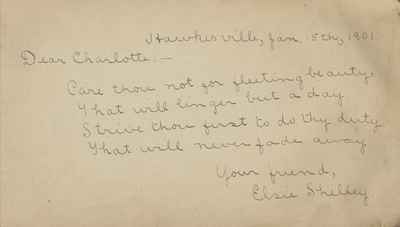 Hawkesville, Jan. 15th, 1901
Dear Charlotte:—
Care thou not for fleeting beauty,
That will linger but a day
Strive thou first to do thy duty
That will never fade away
Your friend,
Elsie Shelley